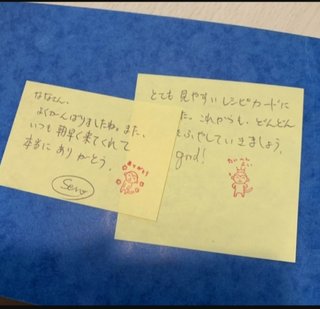 ななてん、
よくがんばりましたね。また、
いつも朝早く来てくれて
本当にありがとう。
Sens
とても見やすいレシピカードに
た。これからも、どんどん
ふやしていきましょう。
gnd!